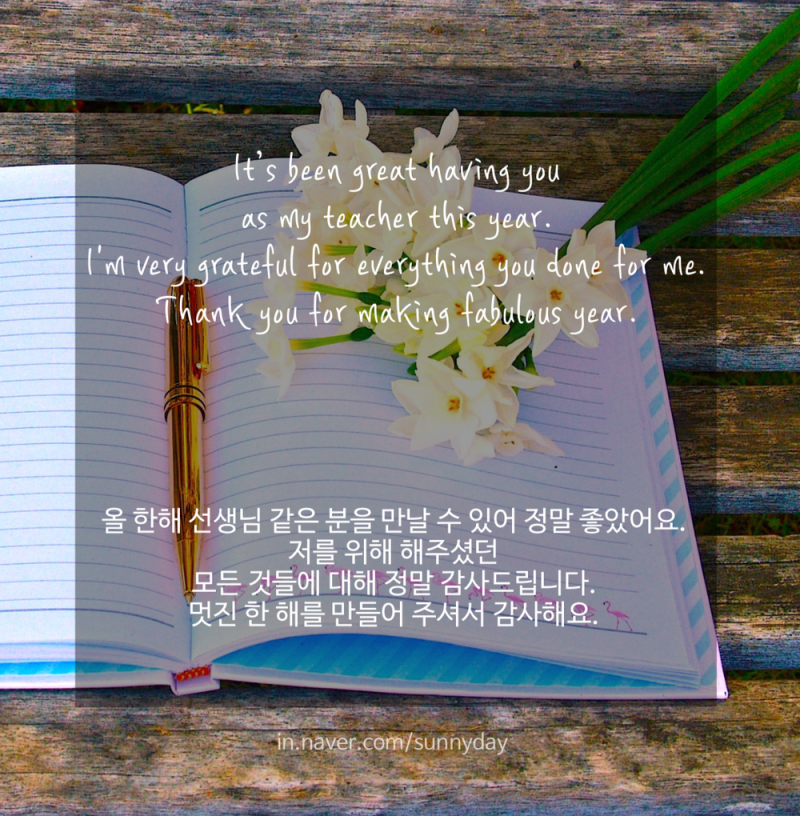 It's been great having you
as my teacher this year.
I'm very grateful for everything you done for me.
Thank you for making fabulous year.
올 한해 선생님 같은 분을 만날 수 있어 정말 좋았어요.
저를 위해 해주셨던
모든 것들에 대해 정말 감사드립니다.
멋진 한 해를 만들어 주셔서 감사해요.
in.naver.com/sunnyday